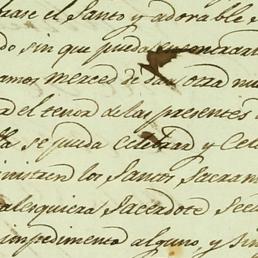 el Santo y adorable
do sin que pueda
amos merced de
a el tenor de las presentes
se pueda Celebrar y Cele
ministren los Santos Sacram
alesquiera Sacerdote Secu
impedimento alguno, y sin